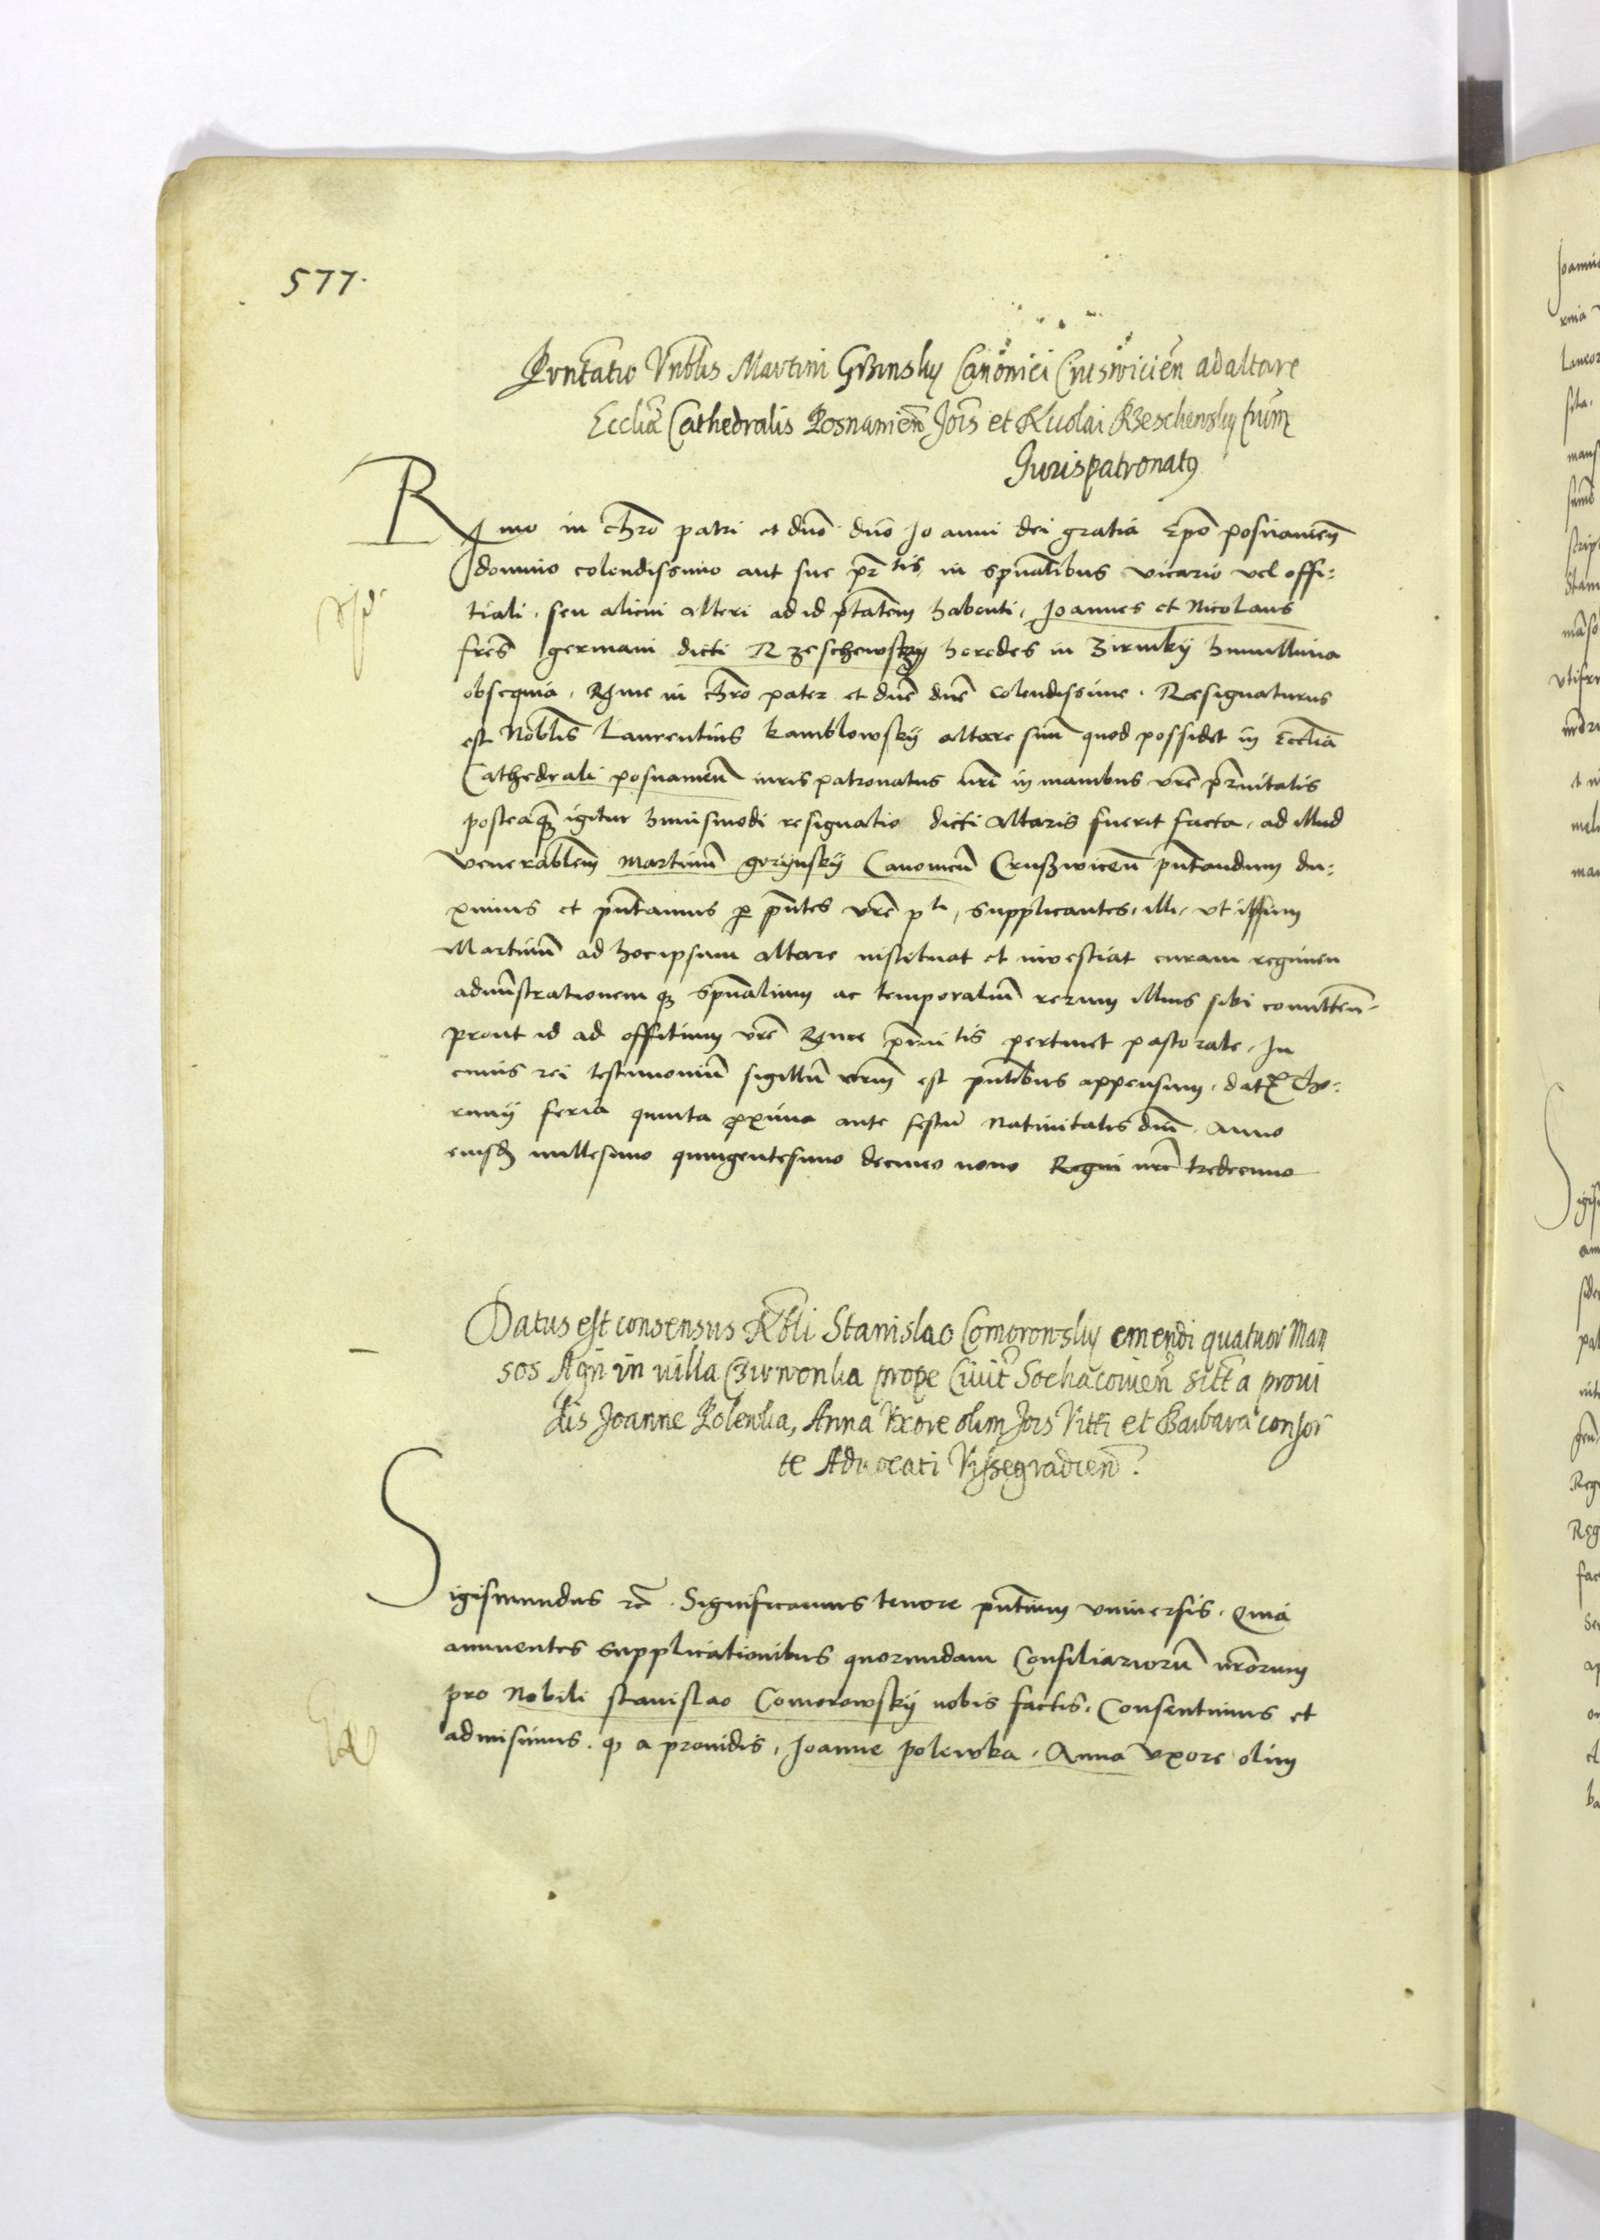 577.
Pntatio Vnblis Martini Gzinsky Canonici Crusvicien ad altare
Ecclie Cathedralis Posnanien Jois et Nicolai Rzeschewsky frum
Jurispatronatq
Rmo in chro patri et dno dno Joanni dei gratia Epo posnanien
domino colendissimo aut sue pr tis in spualibus vicario vel offi:
tiali, seu alicui alteri ad id ptatem habenti, Joannes et Nicolaus
fres germani dicti Rzeschewsky heredes in Zirniky humillima
obsequia, Rme in chro pater et dne dne colendissime. Resignaturus
est Noblis Laurentius kamblowsky altare suu quod possidet in Ecclia
Cathedrali posnanien iuris patronatus nri in manibus vre prnitatis
posteaq igitur huiusmodi resignatio dicti altaris fuerit facta, ad illud
venerablem martinu gorzynsky Canonicu Crußwicen pntandum du:
ximus et pntamus p pntes vre pti, supplicantes illi, vt ipsum
Martinu ad hoc ipsum altare instituat et investiat curam regimen
adminstrationem q spualium ac temporaliu rerum illius sibi comitten-
prout id ad offitium vre Rme prni tis pertinet pastorale. In
cuius rei testimoniu sigillu nrm est pntibus appensum. dat Tho:
runy feria quinta proxima ante festu Nativitatis dni. Anno
eiusd millesimo quingentesimo decimo nono Regni nri tredecimo
Datus est consensus Nbli Stanislao Comorowsky emendi quatuor Man
sos Agri in villa Czirwonka prope Civit Sochaczovien sitt a provi
dis Joanne Polewka, Anna Vxore olim Jois Vitti et Barbara consor
te Advocati Vissegradien.
Sigismundus rc. Significamus tenore pntium vniversis. Quia
annuentes supplicationibus quorundam Consiliarioru nrorum
pro Nobili stanislao Comorowsky nobis factis, Consentimus et
admisimus. q a providis, Joanne polewka, Anna vxore olim